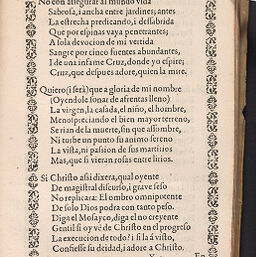 No con assegurar al mundo vida
Sabrosa, i ancha entre jardines; antes
La estrecha predicando, i dessabrida
Que por espinas vaya penetrantes;
A sola devocion de mi vertida
Sangre por cinco fuentes abundantes,
I de una infame Cruz, donde yo espire;
Cruz, que despues adore, quien la mire.
Quiero (i serà) que a gloria de mi nombre
(Oyendole sonar de afrentas lleno)
La virgen, la casada, el niño, el hombre,
Menospreciando el bien mayor terreno,
Se rian de la muerte, sin que assombre,
Ni turbe un punto su animo sereno
La vista, ni passion de sus martirios
Mas, que si vieran rosas entre lirios.
Si Christo assi dixera, qual oyente
De magistral discurso, i grave seso
No replicara: El ombro omnipotente
De solo Dios podra con tanto peso.
Diga el Mosayco, diga el no creyente
Gentil si oy vè de Christo en el progreso
La execucion de todo? i si la à visto,
Confiesse su deidad, i adore a Christo.